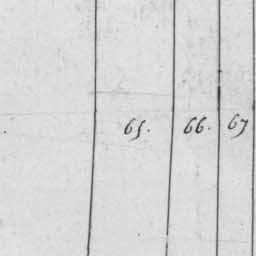 65. 66. 67